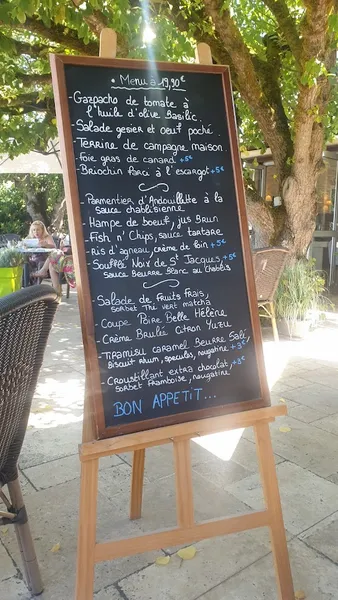 * Menu à 19,90€ *
- Gazpacho de tomate à
l'huile d'olive Basilic.
- Salade gesier et oeuf poché.
- Terrine de campagne maison.
- Foie gras de canard +5€
- Briochin farci à l'escargot +5€
- Parmentier d'Andouillette à la
sauce chablisienne
- Hampe de boeuf, jus Brun
- Fish n' Chips, sauce tartare
- Ris d'agneau, crème de foin +5€
- Soufflé Noix de St Jacques, +5€
sauce Beurre Blanc au Chablis
- Salade de fruits frais,
sorbet Thé vert matcha
- Coupe Poire Belle Hélène
- Crème Brulée Citron Yuzu
- Tiramisu caramel Beurre Salé,
Biscuit rhum, speculos, nougatine +3€
- Croustillant extra chocolat, +3€
sorbet framboise, nougatine
BON APPETIT...